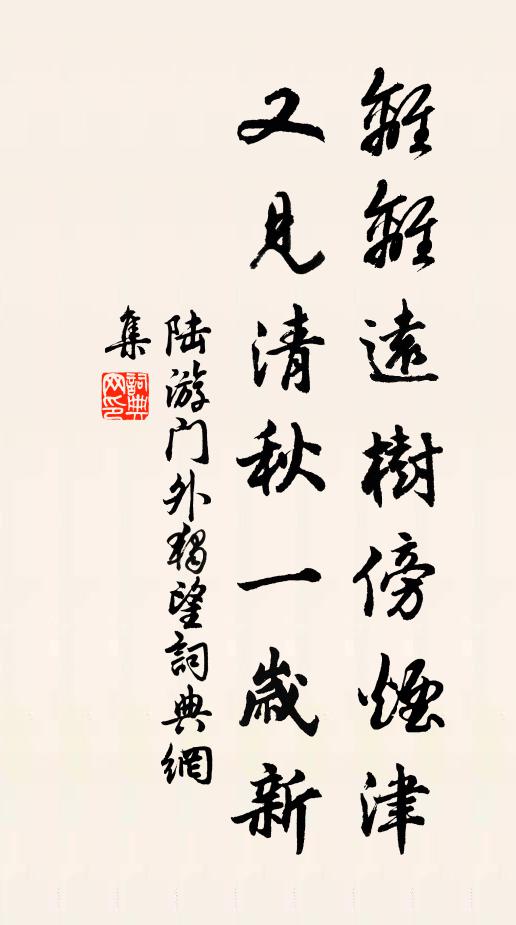 離離遠樹傍煙津
又見清秋一歲新
陆游门外獨望詞典網
集
詞典网印